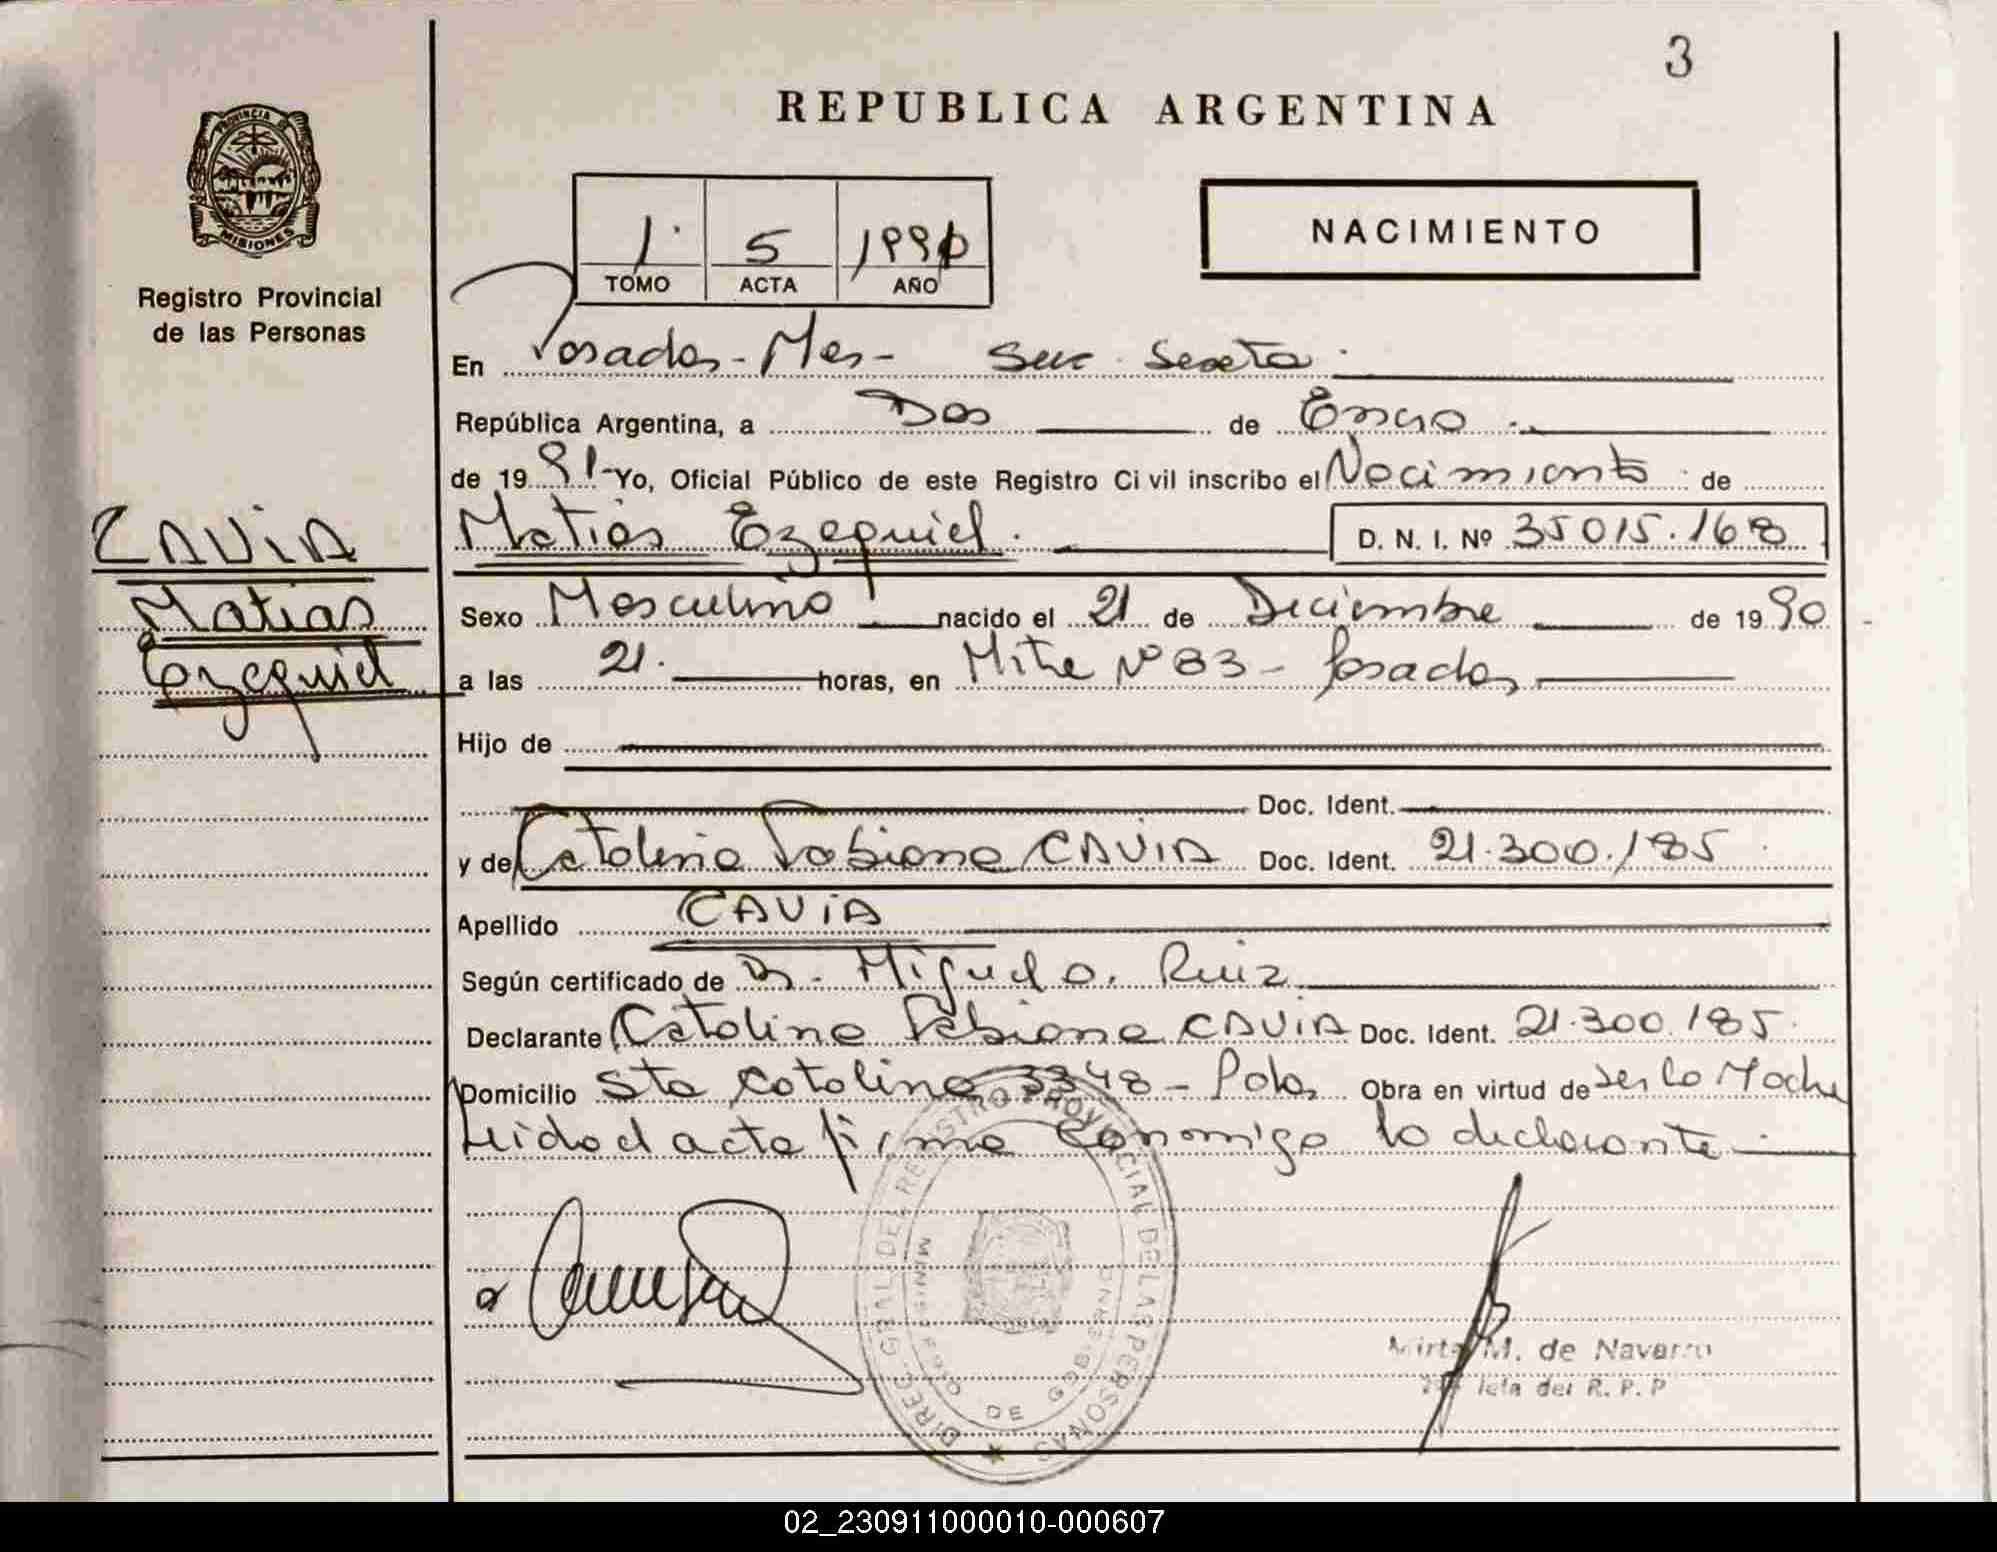 3
REPUBLICA ARGENTINA
PROVINCIA DE
MISIONES
Registro Provincial
de las Personas
NACIMIENTO
1· 5 1990
TOMO ACTA AÑO
En Posadas - Mes - Secc Sexta
República Argentina, a Dos de Enero
de 1991 - Yo, Oficial Público de este Registro Civil inscribo el Nacimiento de
Matias Ezequiel D. N. I. Nº 35015.168
CAViA
Matias
Ezequiel
Sexo Masculino nacido el 21 de Diciembre de 1990
a las 21. horas, en Mitre Nº 83 - Posadas
Hijo de
Doc. Ident.
y de Catalina Fabiana CAViA Doc. Ident. 21.300.185
Apellido CAViA
Según certificado de Dr. Miguel O. Ruiz
Declarante Catalina Fabiana CAViA Doc. Ident. 21.300.185
Domicilio Sta Catalina 3348 - Pdas Obra en virtud de ser la Madre
Leida el acta firma conmigo la declarante
DIREC. GRAL. DEL REGISTRO PROVINCIAL DE LAS PERSONAS
DE GOBIERNO
Mirta M. de Navarro
del R. P. P
02_230911000010-000607